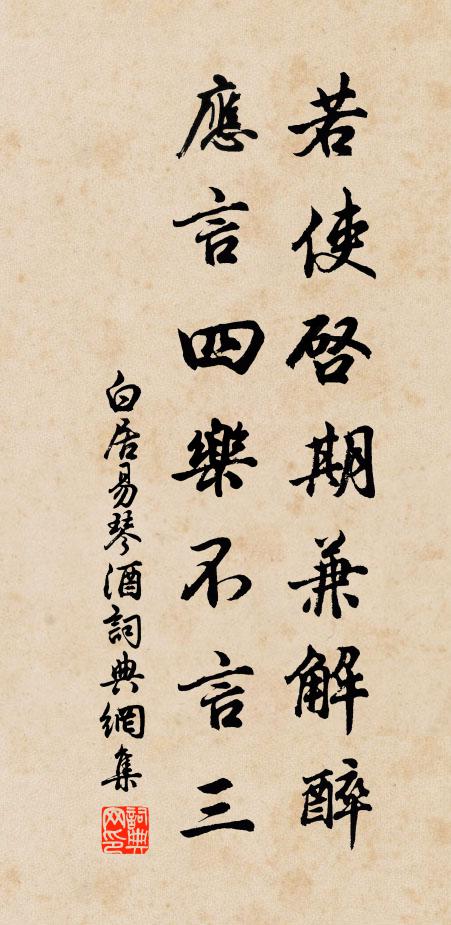 若使啓期兼解醉
應言四樂不言三
白居易琴酒詞典網集
詞典網印